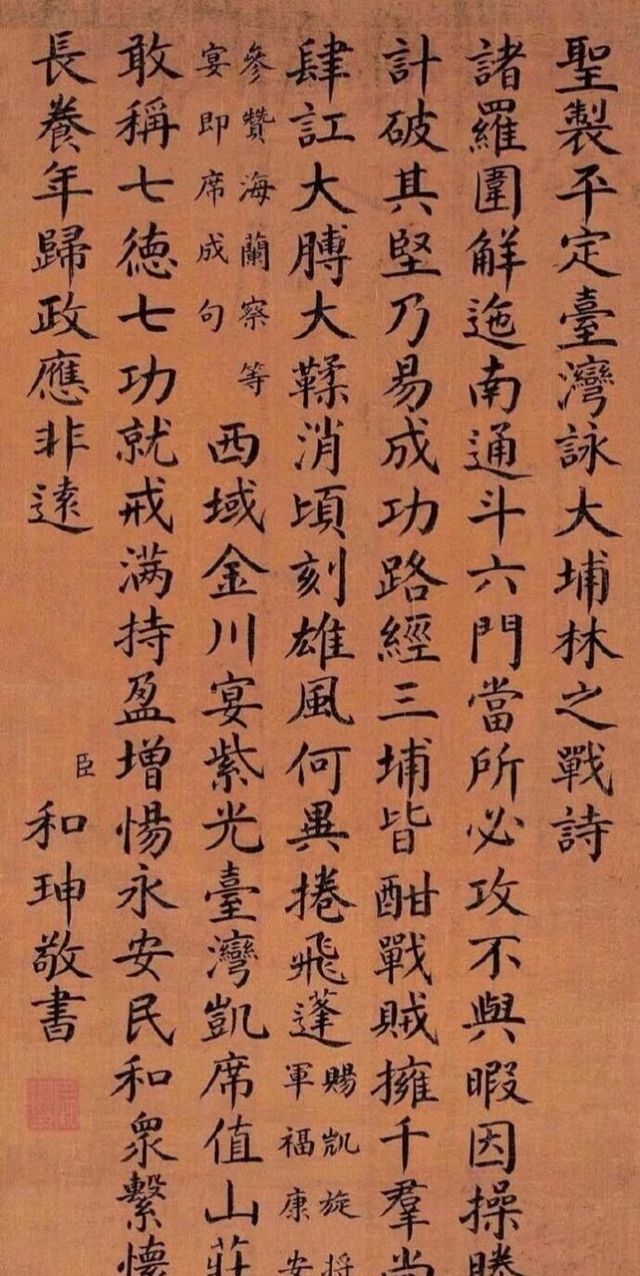 聖製平定臺灣詠大埔林之戰詩
諸羅圍解迤南通斗六門當所必攻不與暇因操勝
計破其堅乃易成功路經三埔皆酣戰賊擁千羣尚
肆訌大膊大鞣消頃刻雄風何異捲飛蓬
賜凱旋將
軍福康安
參贊海蘭察等
宴即席成句
西域金川宴紫光臺灣凱席值山莊
敢稱七徳七功就戒满持盈增惕永安民和衆繫懷
長養年歸政應非遠
臣和珅敬書